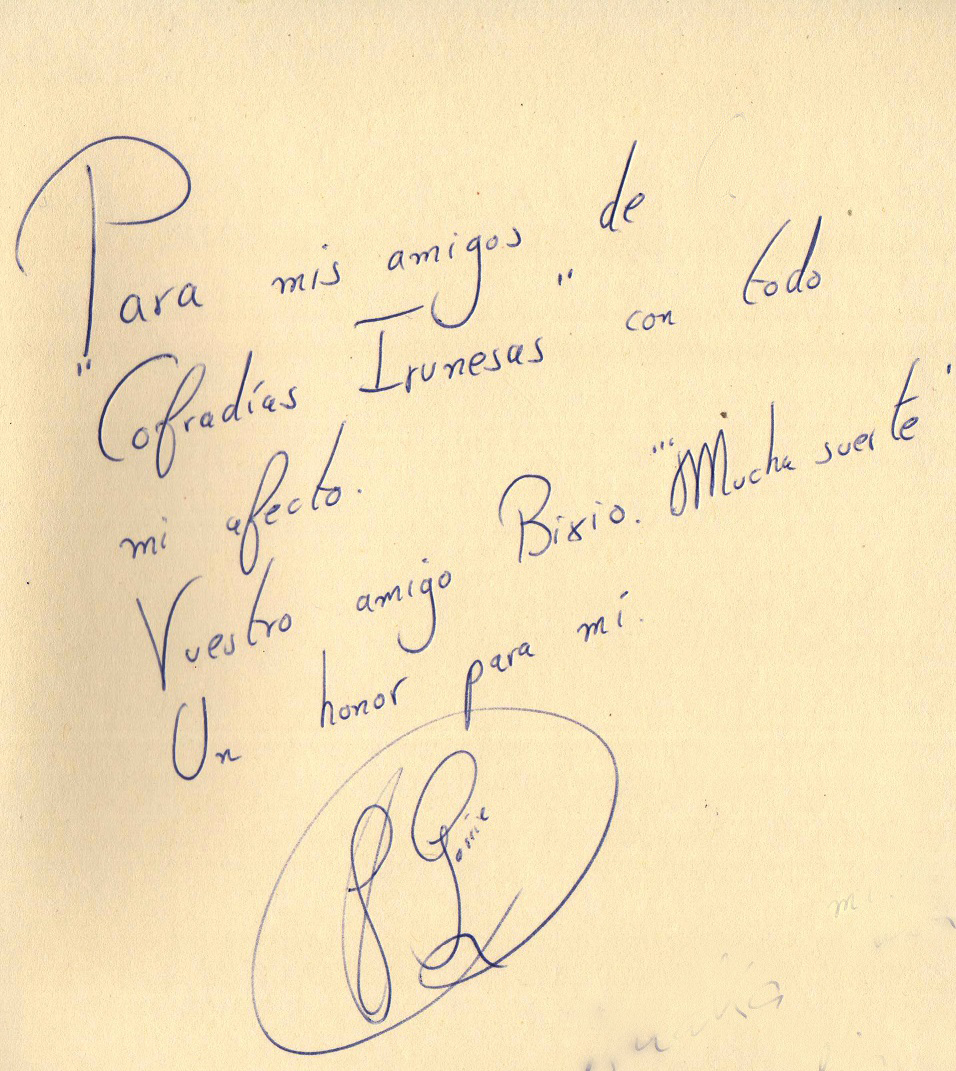 Para mis amigos de
"Cofradías Irunesas" con todo
mi afecto.
Vuestro amigo Bixio. "Mucha suerte"
Un honor para mí.